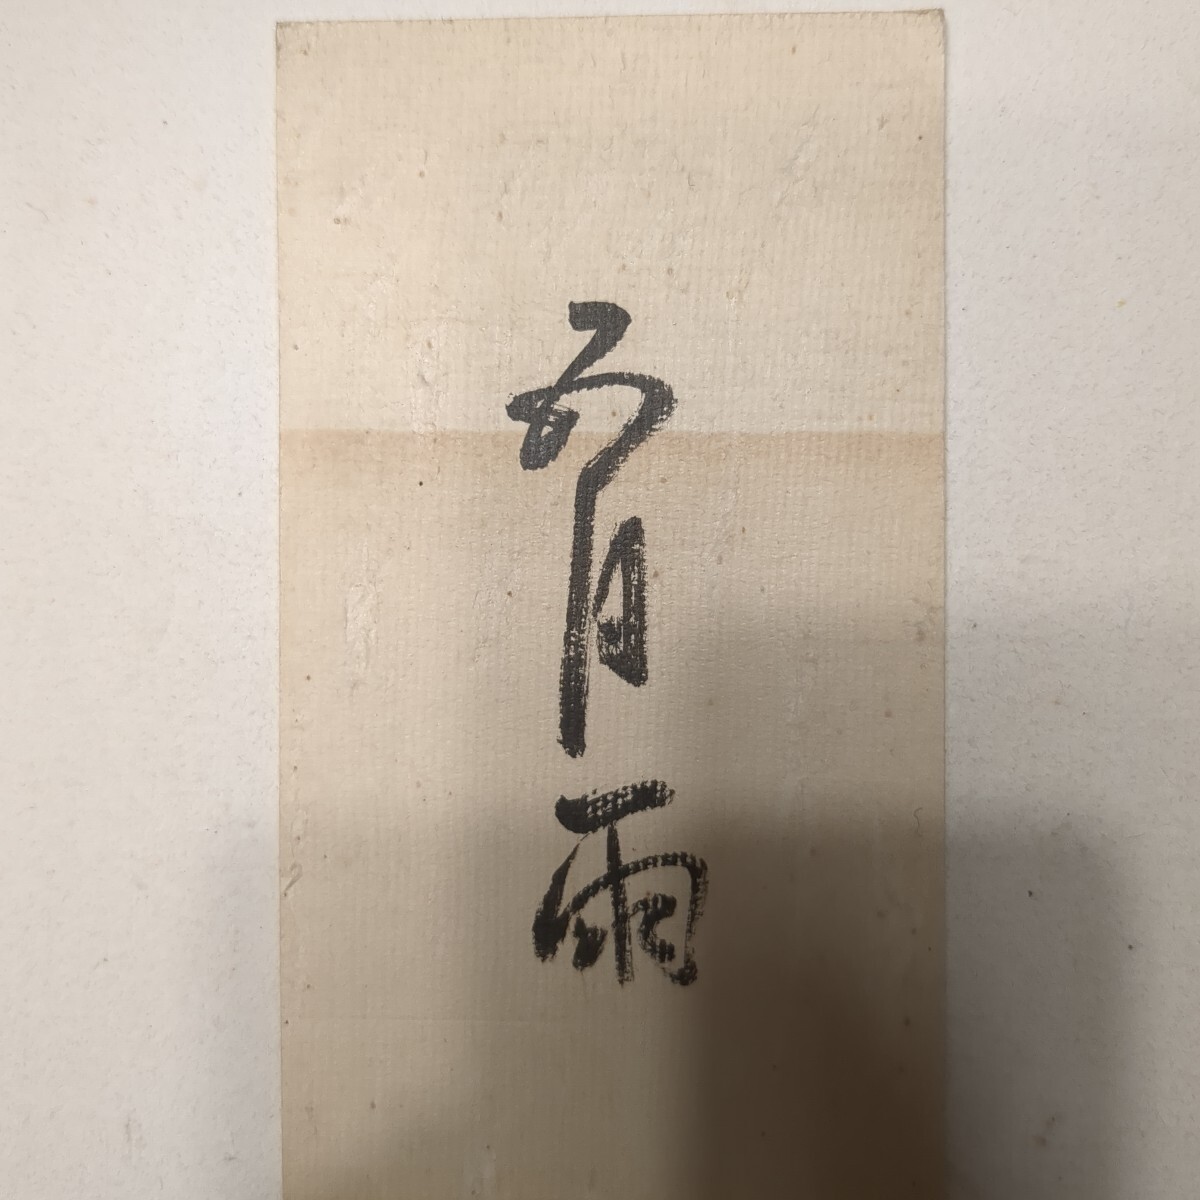 五月雨